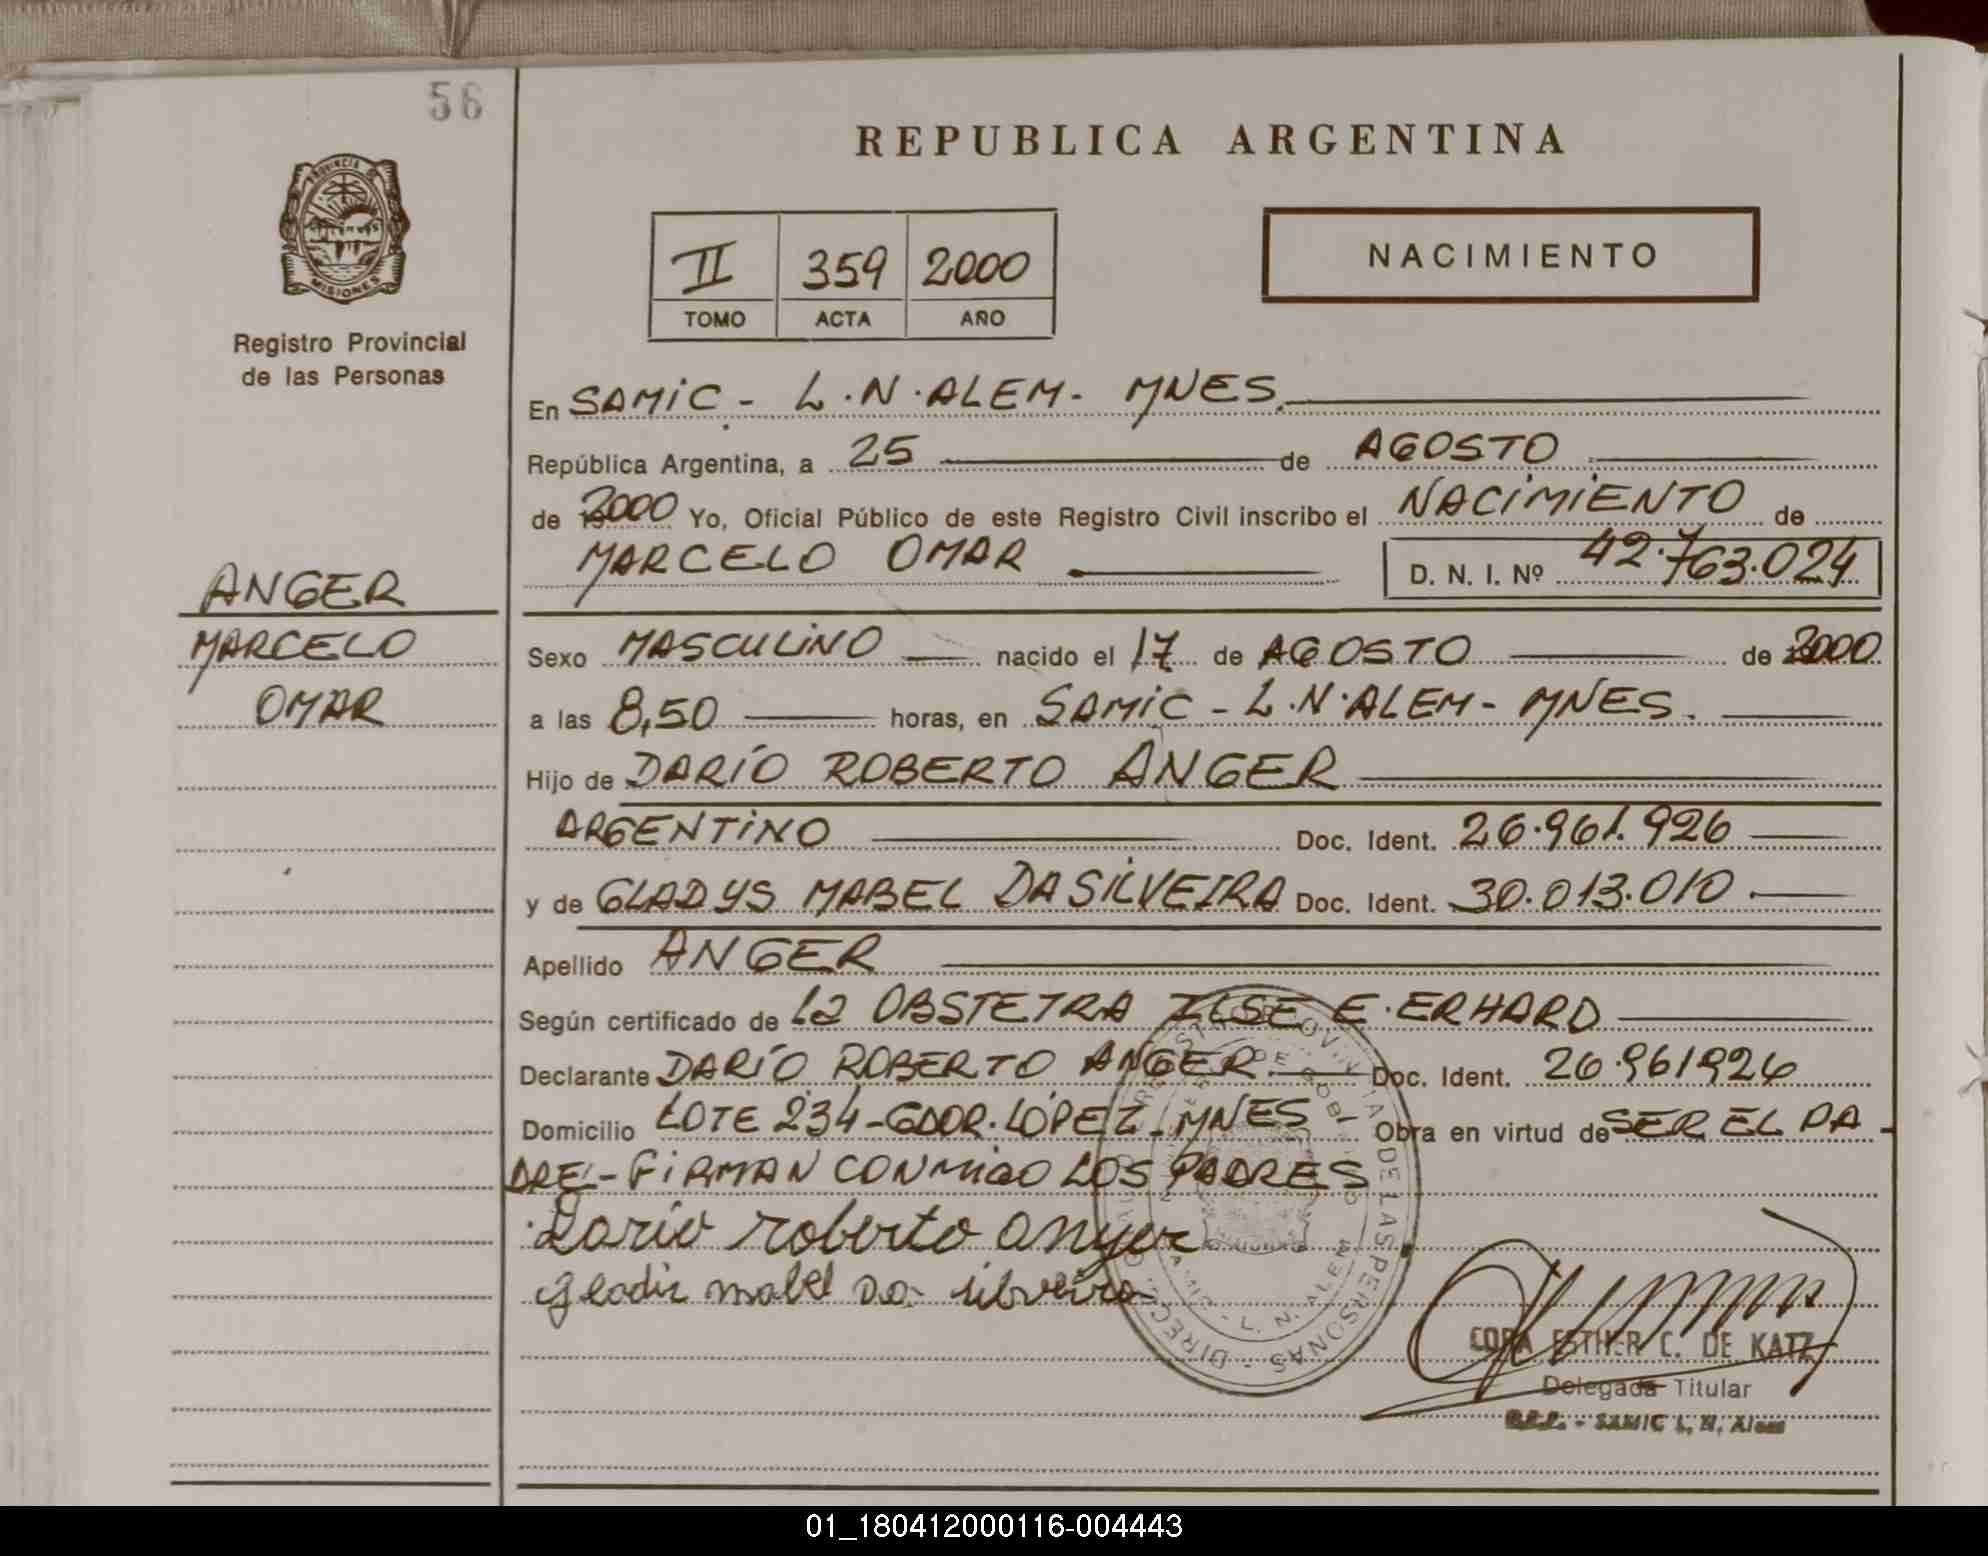 56
REPUBLICA ARGENTINA
PROVINCIA DE
MISIONES
Registro Provincial
de las Personas
II 359 2000
TOMO ACTA AÑO
NACIMIENTO
En SAMIC - L.N.ALEM - MNES.
República Argentina, a 25 de AGOSTO
de 2000 Yo, Oficial Público de este Registro Civil inscribo el NACIMIENTO de
MARCELO OMAR D. N. I. Nº 42.763.024
ANGER
MARCELO
OMAR
Sexo MASCULINO nacido el 17 de AGOSTO de 2000
a las 8,50 horas, en SAMIC - L.N.ALEM - MNES.
Hijo de DARÍO ROBERTO ANGER
ARGENTINO Doc. Ident. 26.961.926
y de GLADYS MABEL DASILVEIRA Doc. Ident. 30.013.010
Apellido ANGER
Según certificado de La OBSTETRA ILSE E. ERHARD
Declarante DARÍO ROBERTO ANGER Doc. Ident. 26.961926
Domicilio LOTE 234-GDOR.LÓPEZ-MNES- Obra en virtud de SER EL PA-
DRE-FIRMAN CONMIGO LOS PADRES
Dario roberto anger
gladis mabel da silveira
L. N. ALEM
CORA ESTHER C. DE KATZ
Delegada Titular
SAMIC L. N. Alem
01_180412000116-004443